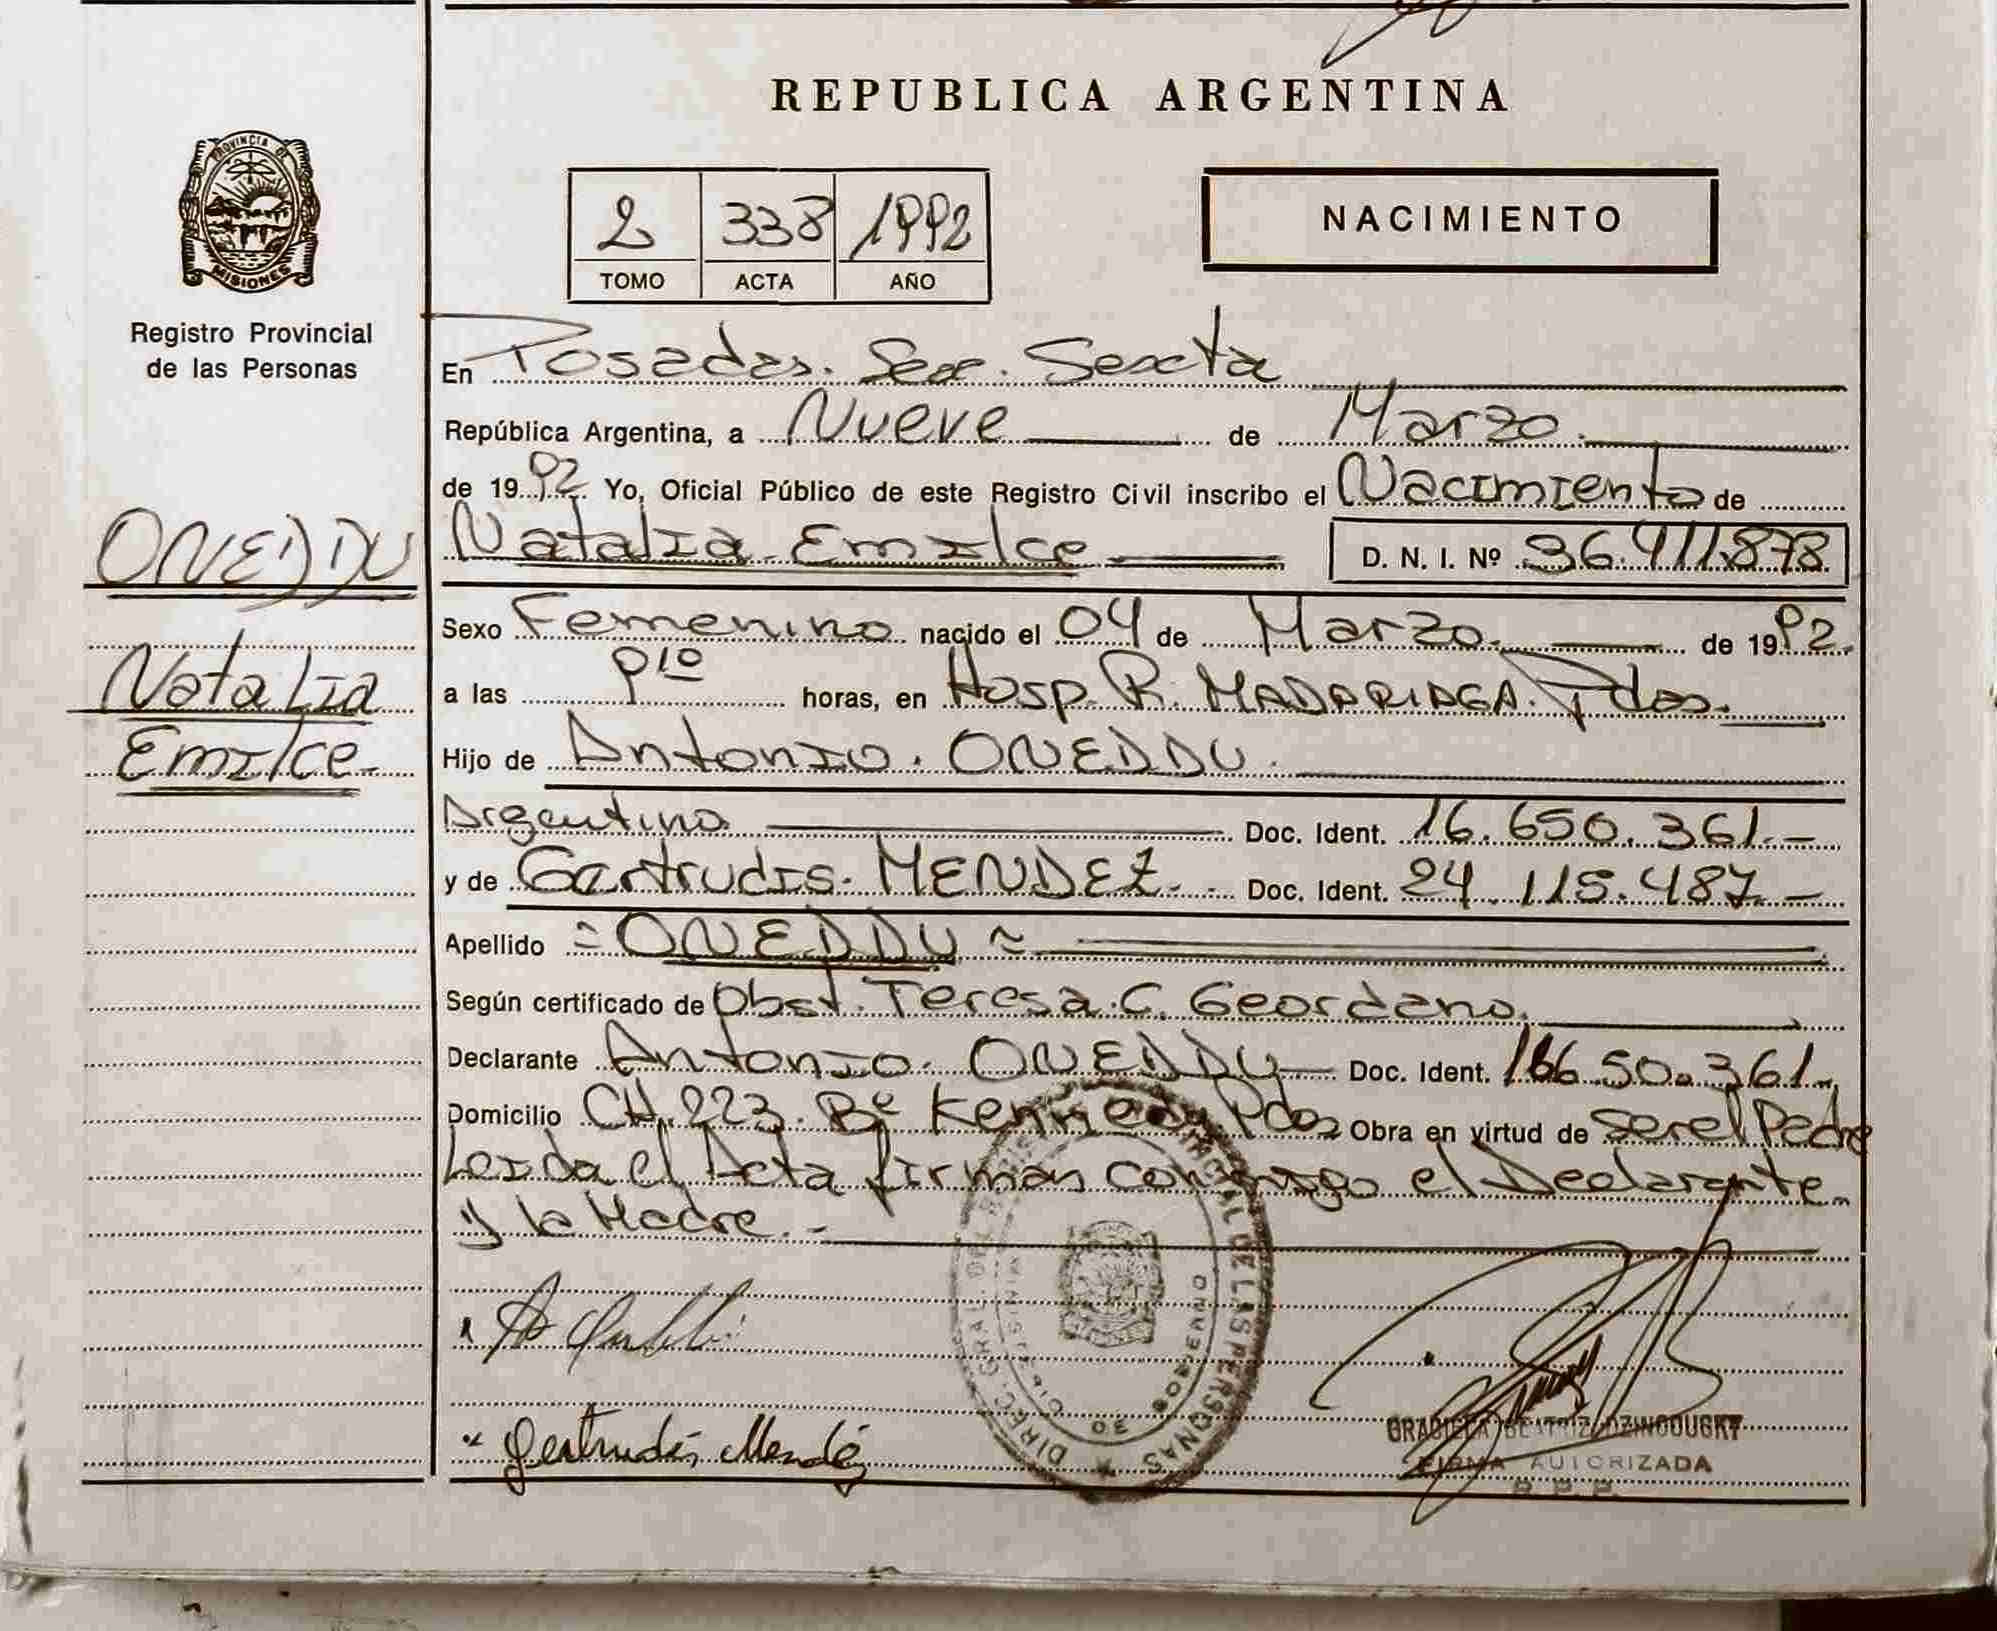 REPUBLICA ARGENTINA
PROVINCIA DE
MISIONES
Registro Provincial
de las Personas
2 338 1992
TOMO ACTA AÑO
NACIMIENTO
En Posadas. Secc. Sexta
República Argentina, a Nueve de Marzo.
de 1992. Yo, Oficial Público de este Registro Civil inscribo el Nacimiento de
Natalia Emilce D. N. I. Nº 36.411.878.
ONEDDU
Natalia
Emilce
Sexo Femenino nacido el 04 de Marzo. de 1992.
a las 9,10 horas, en Hosp. R. MADARIAGA. Pdas.
Hijo de Antonio. ONEDDU.
Argentino Doc. Ident. 16.650.361.-
y de Gertrudis. MENDEZ. Doc. Ident. 24.115.487.-
Apellido = ONEDDU =
Según certificado de Obst. Teresa. C. Geordano.
Declarante Antonio. ONEDDU Doc. Ident. 16650.361.
Domicilio CH.223. Bº Kennedy Pdas Obra en virtud de ser el Padre
Leida el Acta firman conmigo el Declarante
y la Madre.-
Gertrudis Mendéz
DE LAS PERSONAS
GRACIELA BEATRIZ DZINGOUSKY
FIRMA AUTORIZADA